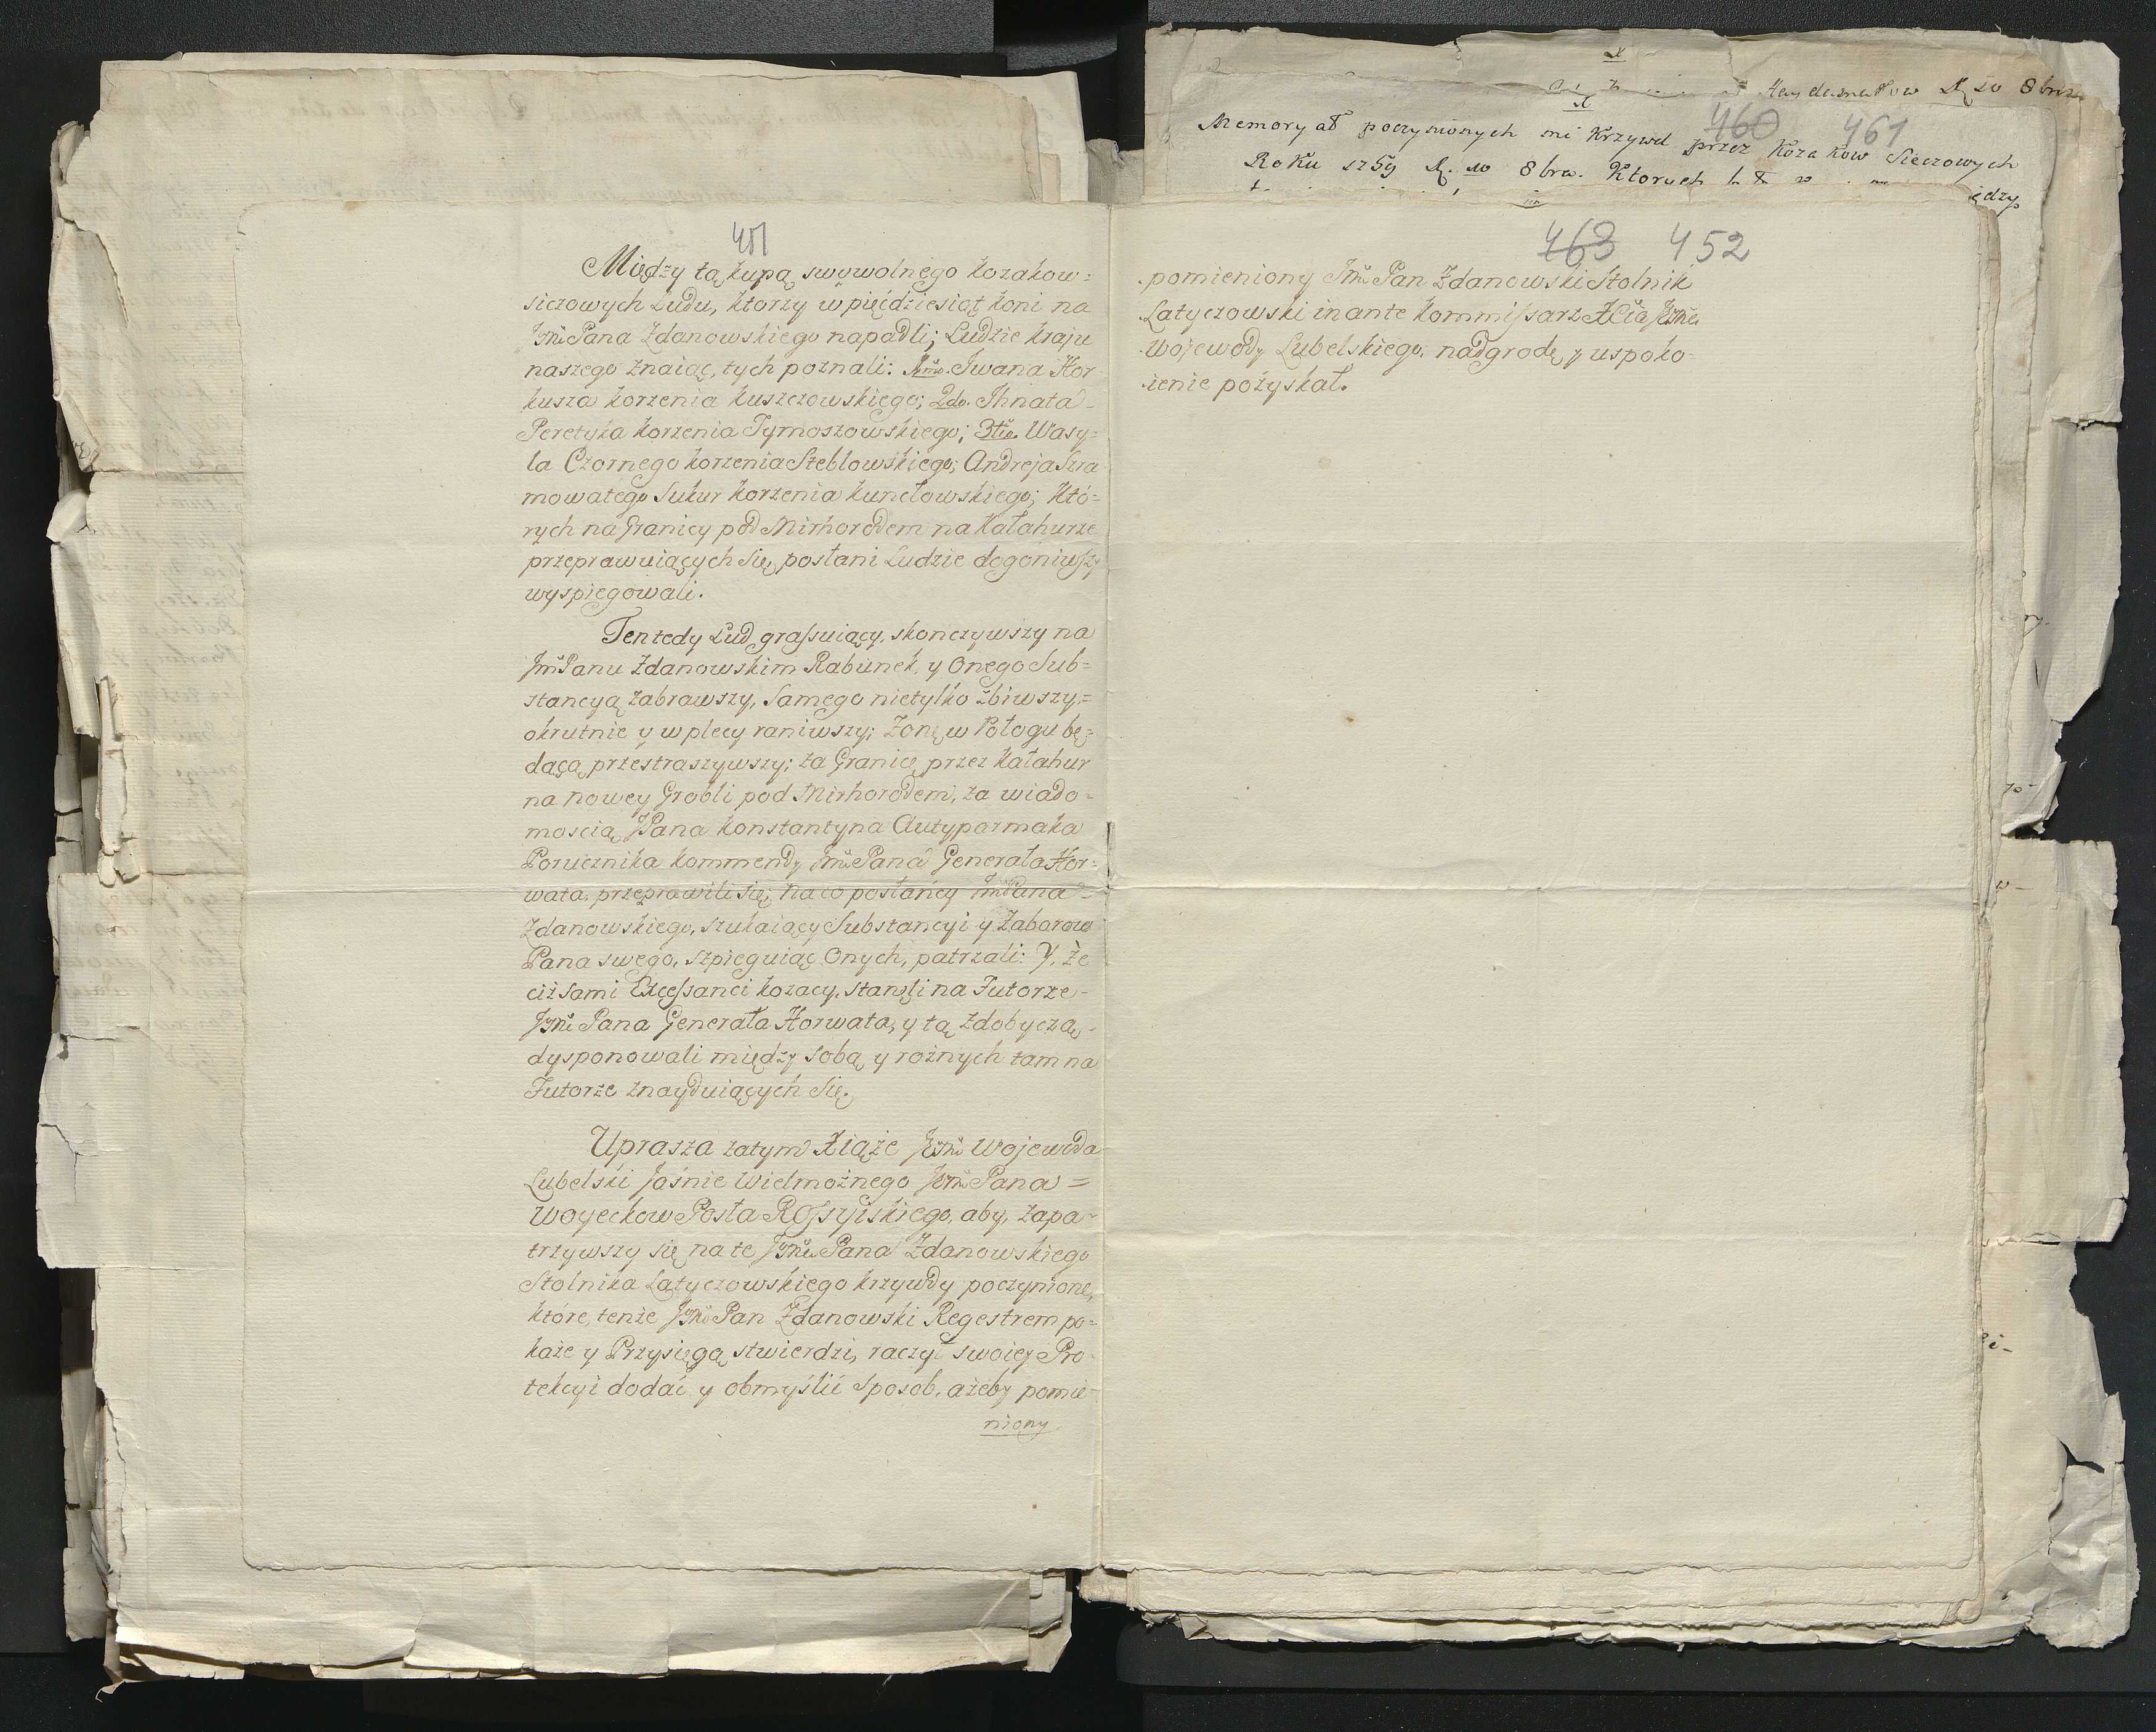 451
Między tą kupą swywolnego kozakow=
siczowych Ludu, ktorzy w pięćdziesiąt koni na
Jmć Pana Zdanowskiego napadli; Ludzie kraju
naszego znaiąc, tych poznali: Imo. Iwana Hor
kusza korzenia kuszczowskiego; 2do. Ihnata
Peretyka korzenia Tymoszowskiego; 3tio. Wasy=
la Czornego korzenia Steblowskiego; Andreja Szra
mowatego Sukur korzenia kunełowskiego; Któ=
rych na Granicy pod Mirhorodem na Kałahurze
przeprawuiących się, posłani Ludzie dogoniwszy
wyspiegowali.
Ten tedy Lud grassuiący, skonczywszy na
Jmć Panu Zdanowskim Rabunek, y onego Sub=
stancyą zabrawszy, Samego nietylko zbiwszy,=
okrutnie y w plecy raniwszy; Zonę w Połogu bę=
dącą przestraszywszy; za Granicę przez Kałahur
na nowey Grobli pod Mirhorodem, za wiado=
moscią JPana Konstantyna Autyparmaka
Porucznika kommendy Jmć Pana Generała Hor=
wata, przeprawili się; na co posłańcy Jmć Pana
Zdanowskiego, szukaiący Substancyi y Zaborow
Pana swego, szpieguiąc Onych, patrzali: Y, że
ciż sami Excessanci kozacy, staneli na Futorze
Jmć Pana Generała Horwata, y tą zdobyczą
dysponowali między sobą y rożnych tam na
Futorze znayduiących się.
Uprasza zatym Xiąże Jmć Wojewoda
Lubelski Jaśnie Wielmożnego Jmć Pana =
Woyeckow Posła Rossyiskiego, aby, zapa=
trzywszy się na te Jmć Pana Zdanowskiego
Stolnika Latyczowskiego krzywdy poczynione,
które, tenże Jmć Pan Zdanowski Regestrem po=
każe y Przysięgą stwierdzi, raczył swoiey Pro=
tekcyi dodać y obmyślić sposob, ażeby pomie=
niony
460 461
Memoryał poczynionych mi Krzywd przez Kozakow Sieczowych
Roku 1759 d. 10 8bra. Ktorych
463 452
pomieniony Jmć Pan Zdanowski Stolnik
Latyczowski in ante Kommissarz XCia Jmci
Wojewody Lubelskiego, nadgrodę y uspoko=
ienie pożyskał.